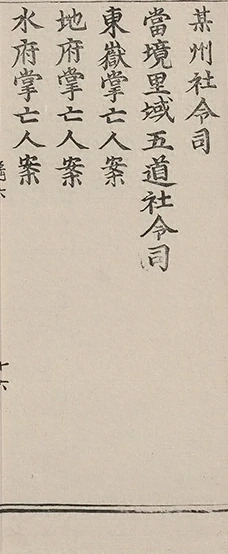 某州社令司
當境里域五道社令司
東嶽掌亡人案
地府掌亡人案
水府掌亡人案
十六